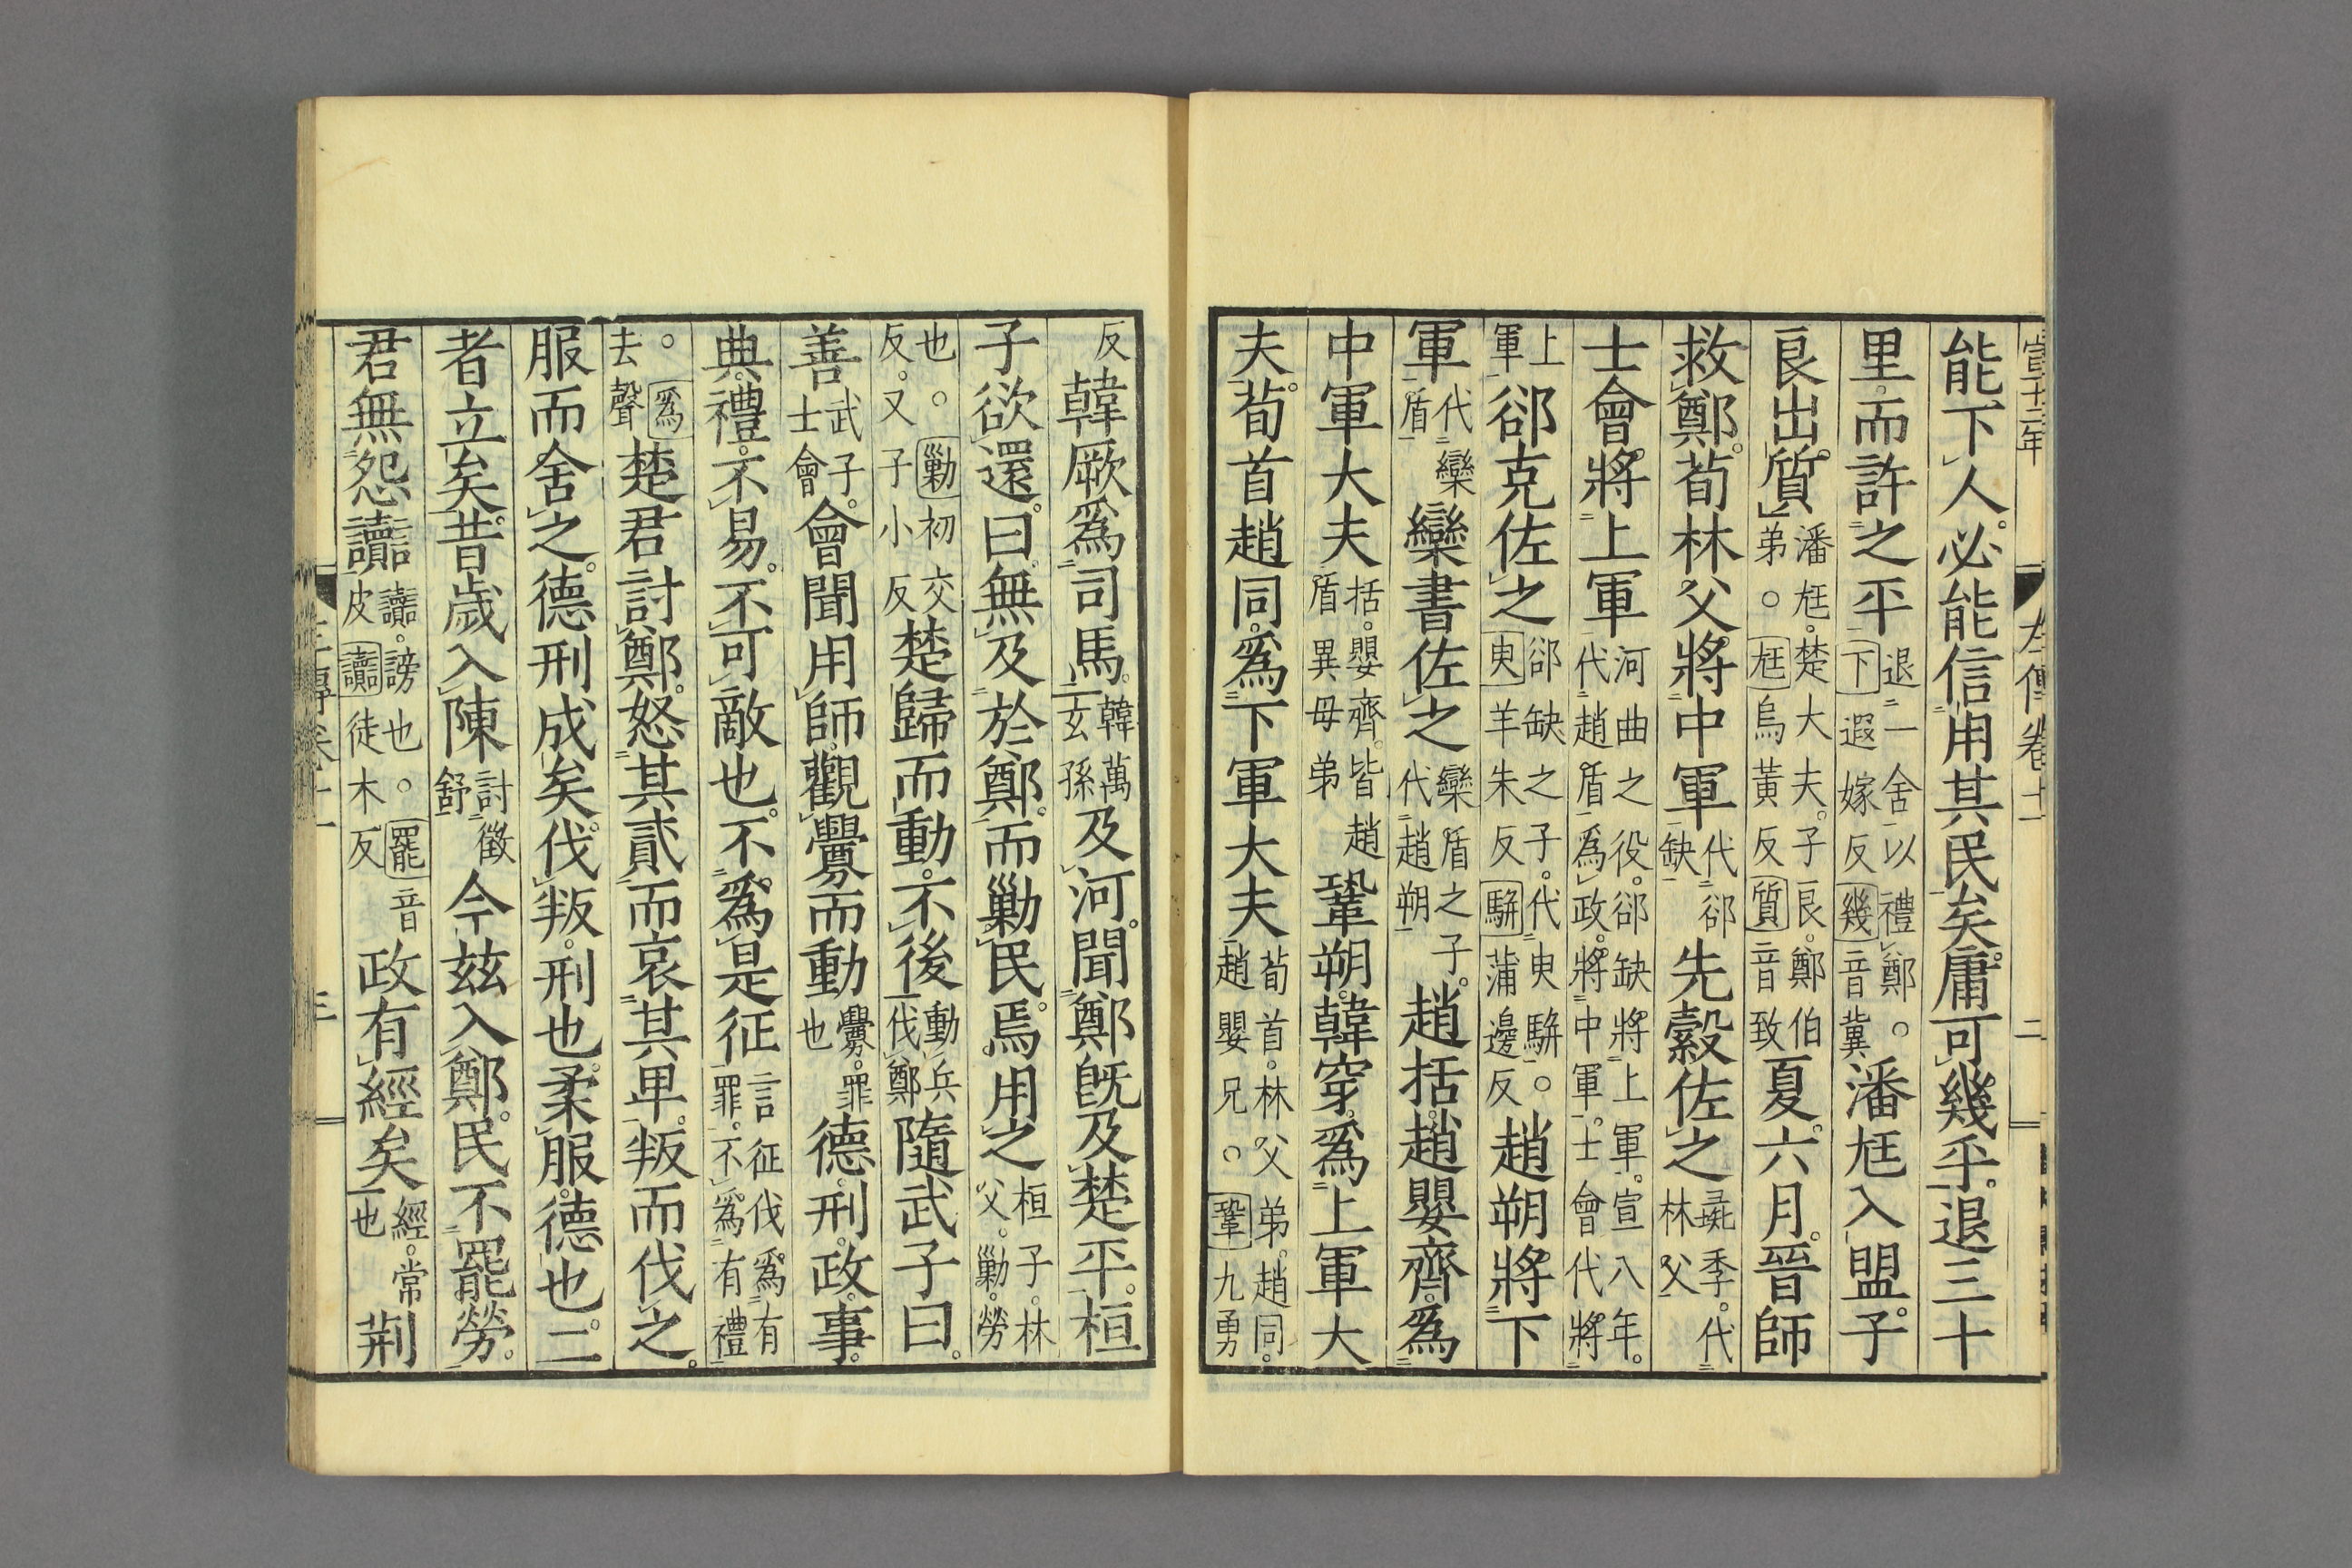 宣十二年 左傳卷十一 二
能下人。必能信用其民矣。庸可幾乎。退三十
里。而許之平退一舍以禮鄭。○下遐嫁反幾音冀潘尫入盟。子
良出質潘尫。楚大夫。子良。鄭伯弟。○尫烏黃反質音致夏六月。晉師
救鄭。荀林父將中軍代郤缺先縠佐之彘季。代林父
士會將上軍河曲之役。郤缺將上軍。宣八年。代趙盾爲政。將中軍。士會代將
上軍郤克佐之郤缺之子。代臾駢。○臾羊朱反駢蒲邊反趙朔將下
軍代欒盾欒書佐之欒盾之子。代趙朔趙括。趙嬰齊。爲
中軍大夫括。嬰齊。皆趙盾異母弟鞏朔。韓穿。爲上軍大
夫。荀首趙同。爲下軍大夫荀首。林父弟。趙同。趙嬰兄。○鞏九勇
反韓厥爲司馬韓萬玄孫及河。聞鄭既及楚平。桓
子欲還。曰。無及於鄭。而勦民。焉用之桓子。林父。勦。勞
也。○勦初交反。又子小反楚歸而動。不後動兵伐鄭隨武子曰。
善武子。士會會聞用師。觀釁而動釁。罪也德。刑。政。事。
典。禮。不易。不可敵也。不爲是征言征伐爲有罪。不爲有禮
○爲去聲楚君討鄭。怒其貳而哀其卑。叛而伐之。
服而舍之。德刑成矣。伐叛。刑也。柔服。德也。二
者立矣。昔歲入陳討徵舒今茲入鄭。民不罷勞。
君無怨讟讟。謗也。○罷音皮讟徒木反政有經矣經。常也荊